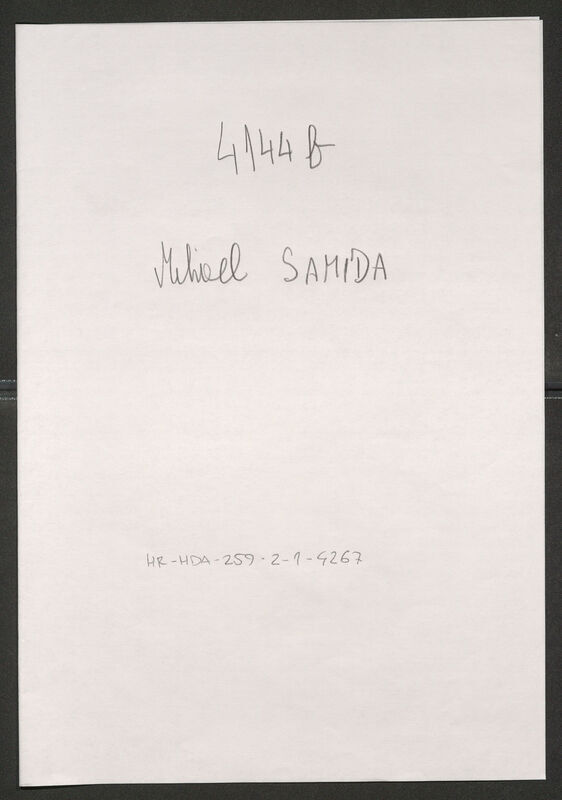 4144 b
Mihael SAMIDA
HR-HDA-259-2-1-4267